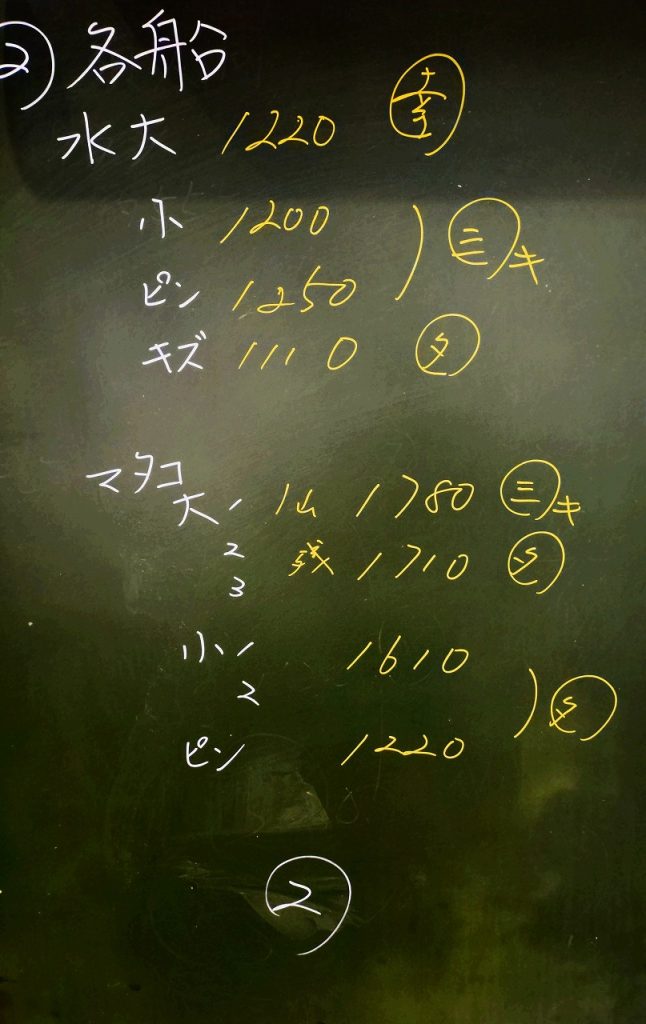 ② 各船
水大 1220 幸
小 1200
ピン 1250 ミキ
キズ 1110 タ
マタコ
大1 1山 1780 ミキ
2 残 1710 タ
3
小1 1610
2 タ
ピン 1220
②